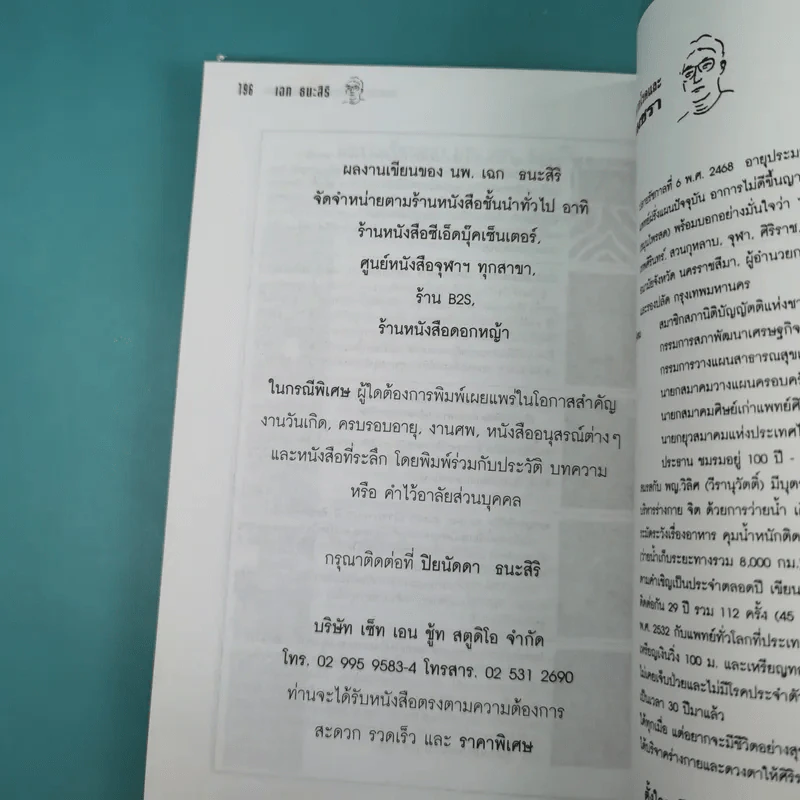 196 เฉก ธนะสิริ
ผลงานเขียนของ นพ. เฉก ธนะสิริ
จัดจำหน่ายตามร้านหนังสือชั้นนำทั่วไป อาทิ
ร้านหนังสือซีเอ็ดบุ๊คเซ็นเตอร์,
ศูนย์หนังสือจุฬาฯ ทุกสาขา,
ร้าน B2S,
ร้านหนังสือดอกหญ้า
ในกรณีพิเศษ ผู้ใดต้องการพิมพ์เผยแพร่ในโอกาสสำคัญ
งานวันเกิด, ครบรอบอายุ, งานศพ, หนังสืออนุสรณ์ต่างๆ
และหนังสือที่ระลึก โดยพิมพ์ร่วมกับประวัติ บทความ
หรือ คำไว้อาลัยส่วนบุคคล
กรุณาติดต่อที่ ปิยนัดดา ธนะสิริ
บริษัท เซ็ท เอน ชู้ท สตูดิโอ จำกัด
โทร. 02 995 9583-4 โทรสาร. 02 531 2690
ท่านจะได้รับหนังสือตรงตามความต้องการ
สะดวก รวดเร็ว และ ราคาพิเศษ
รัชกาลที่ 6 พ.ศ. 2468 อายุประมา
แพทย์ฝังแผนปัจจุบัน อาการไม่ดีขึ้นญา
(สมุนไพรสด) พร้อมบอกอย่างมั่นใจว่า
เทพศิรินทร์, สวนกุหลาบ, จุฬา, ศิริราช,
อนามัยจังหวัด นครราชสีมา, ผู้อำนวยก
และรองปลัด กรุงเทพมหานคร
สมาชิกสภานิติบัญญัติแห่งชา
กรรมการสภาพัฒนาเศรษฐกิจ
กรรมการวางแผนสาธารณสุข
นายกสมาคมวางแผนครอบครั
นายกสมาคมศิษย์เก่าแพทย์ศิ
นายกยุวสมาคมแห่งประเทศไ
ประธาน ชมรมอยู่ 100 ปี -
สมรสกับ พญ.วิลิศ (วีรานุวัตติ์) มีบุตร
บริหารร่างกาย จิต ด้วยการว่ายน้ำ
ระมัดระวังเรื่องอาหาร คุมน้ำหนักติด
(ว่ายน้ำเก็บระยะทางรวม 8,000 กม.
ตามคำเชิญเป็นประจำตลอดปี เขียน
ติดต่อกัน 29 ปี รวม 112 ครั้ง (45
พ.ศ. 2532 กับแพทย์ทั่วโลกที่ประเท
เหรียญเงินวิ่ง 100 ม. และเหรียญทอ
ไม่เคยเจ็บป่วยและไม่มีโรคประจำตัว
เป็นเวลา 30 ปีมาแล้ว
ได้ทุกเมื่อ แต่อยากจะมีชีวิตอย่างสุ
ได้บริจาคร่างกายและดวงตาให้ศิริร